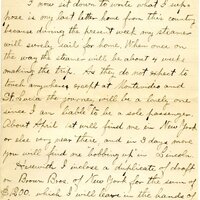 I now set down to write what I sup-
pose is my last letter home from this country
because during the present week my steamer
will surely sail for home. When once on
the way the steamer will be about 4 weeks
making the trip. As they do not expect to
touch anywhere except at Montevideo and
St. Lucia the journey will be a lonely one
since I am liable to be a sole passenger.
About April 1st will find me in New York
or else very near there, and in 3 days more
you will find me bobbing up in Lincoln.
Herewith I inclose a duplicate of draft
on Brown Bros. of New York for the sum of
$1,200. which I will leave in the hands of